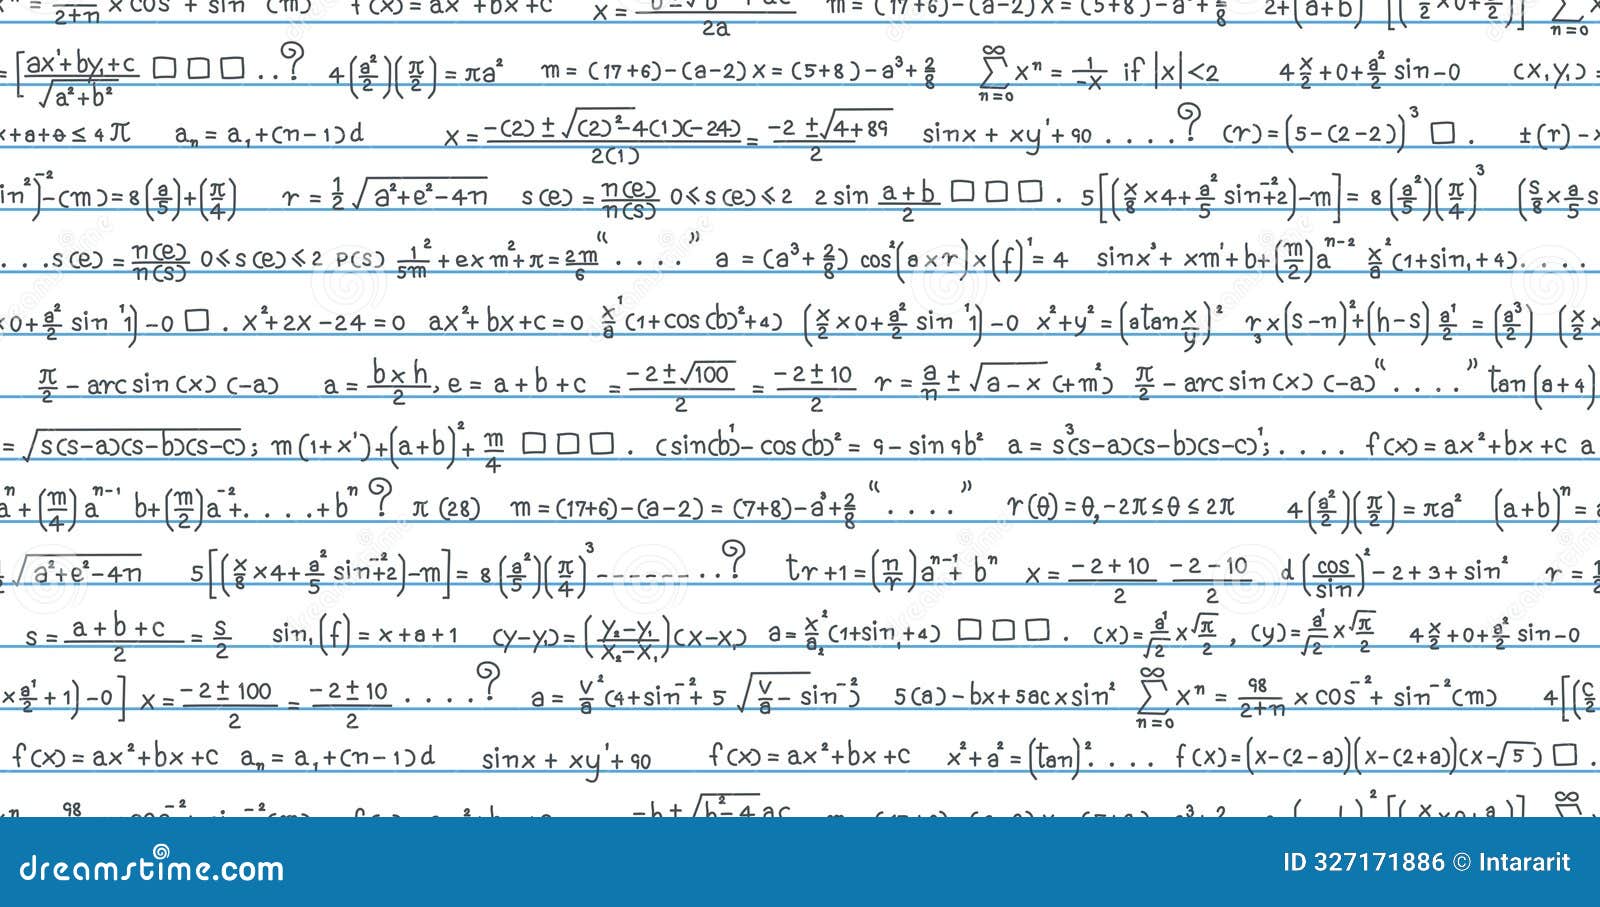 = [ax'+by,+c / √a²+b² □ □ □ ..? 4(a²/2)(π/2) = πa² m = (17+6)-(a-2) x = (5+8)-a³+2/8 ∞∑n=0 xⁿ = 1/-x if |x|<2 4x/2+0+a²/2 sin-0 (x,y,) =
x+a+θ ≤ 4π aₙ = a,+(n-1)d x = -(2) ± √(2)²-4(1)(-24) / 2(1) = -2 ±√4+89 / 2 sinx + xy'+90 ....? (r)=(5-(2-2))³ □. ±(r)-x
in²)⁻²-(m)=8(a/5)+(π/4) r = 1/2 √a²+e²-4n s(e) = n(e)/n(s) 0≤s(e)≤2 2 sin a+b/2 □ □ □. 5[(x/8 x4+a²/5 sin⁻²+2)-m] = 8(a²/5)(π/4)³ (s/8 x a/5 s
...s(e) = n(e)/n(s) 0≤s(e)≤2 P(s) 1²/5m + ex m²+π = 2m/6 “....” a = (a³+2/8) cos²(axr)x(f)¹ = 4 sinx³+ xm'+b+(m/2)aⁿ⁻² x²/a(1+sin,+4)....
x0+a²/2 sin¹1)-0 □. x²+2x-24=0 ax²+bx+c=0 x¹/a(1+cos(b)²+4) (x/2 x0+a²/2 sin¹1)-0 x²+y² = (atan x/y)² r₃x(s-n)²+(h-s) a¹/2 = (a³/2) (x/2 x
π/2 - arcsin(x) (-a) a = bxh/2, e = a+b+c = -2±√100 / 2 = -2±10 / 2 r = a/n ± √a-x (+m²) π/2 - arcsin(x) (-a)“....” tan(a+4)
= √s(s-a)(s-b)(s-c); m(1+x')+(a+b)²+ m/4 □ □ □. (sin(b)¹-cos(b)² = 9-sin9b² a = s³(s-a)(s-b)(s-c)¹;.... f(x) = ax²+bx+c a
ⁿa+(m/4)aⁿ⁻¹ b+(m/2)a⁻²+....+bⁿ? π(28) m = (17+6)-(a-2) = (7+8)-a³+2/8 “....” r(θ) = θ,-2π≤θ≤2π 4(a²/2)(π/2) = πa² (a+b)ⁿ = a
√a²+e²-4n 5[(x/8 x4+a²/5 sin⁻²+2)-m] = 8(a²/5)(π/4)³-------..? tr+1 = (n/r)aⁿ⁻¹+ bⁿ x = -2+10 / 2 -2-10 / 2 d(cos/sin)²-2+3+sin² r = 1
s = a+b+c / 2 = s/2 sin,(f) = x+a+1 (y-y,) = (y₂-y,/x₂-x,)(x-x,) a = x²/a₂(1+sin,+4) □ □ □. (x) = a¹/√2 x√π/2, (y) = a¹/√2 x√π/2 4x/2+0+a²/2 sin-0
x a¹/2 +1)-0] x = -2±100 / 2 = -2±10 / 2 ....? a = v²/a(4+sin⁻²+5 √v/a-sin⁻²) 5(a)-bx+5acxsin² ∞∑n=0 xⁿ = 98/2+n x cos⁻²+ sin⁻²(m) 4[(c/2
f(x) = ax²+bx+c aₙ = a,+(n-1)d sinx + xy'+90 f(x) = ax²+bx+c x²+a² = (tan)².... f(x) = (x-(2-a))(x-(2+a))(x-√5) □.
dreamstime.com ID 327171886 © Intararit